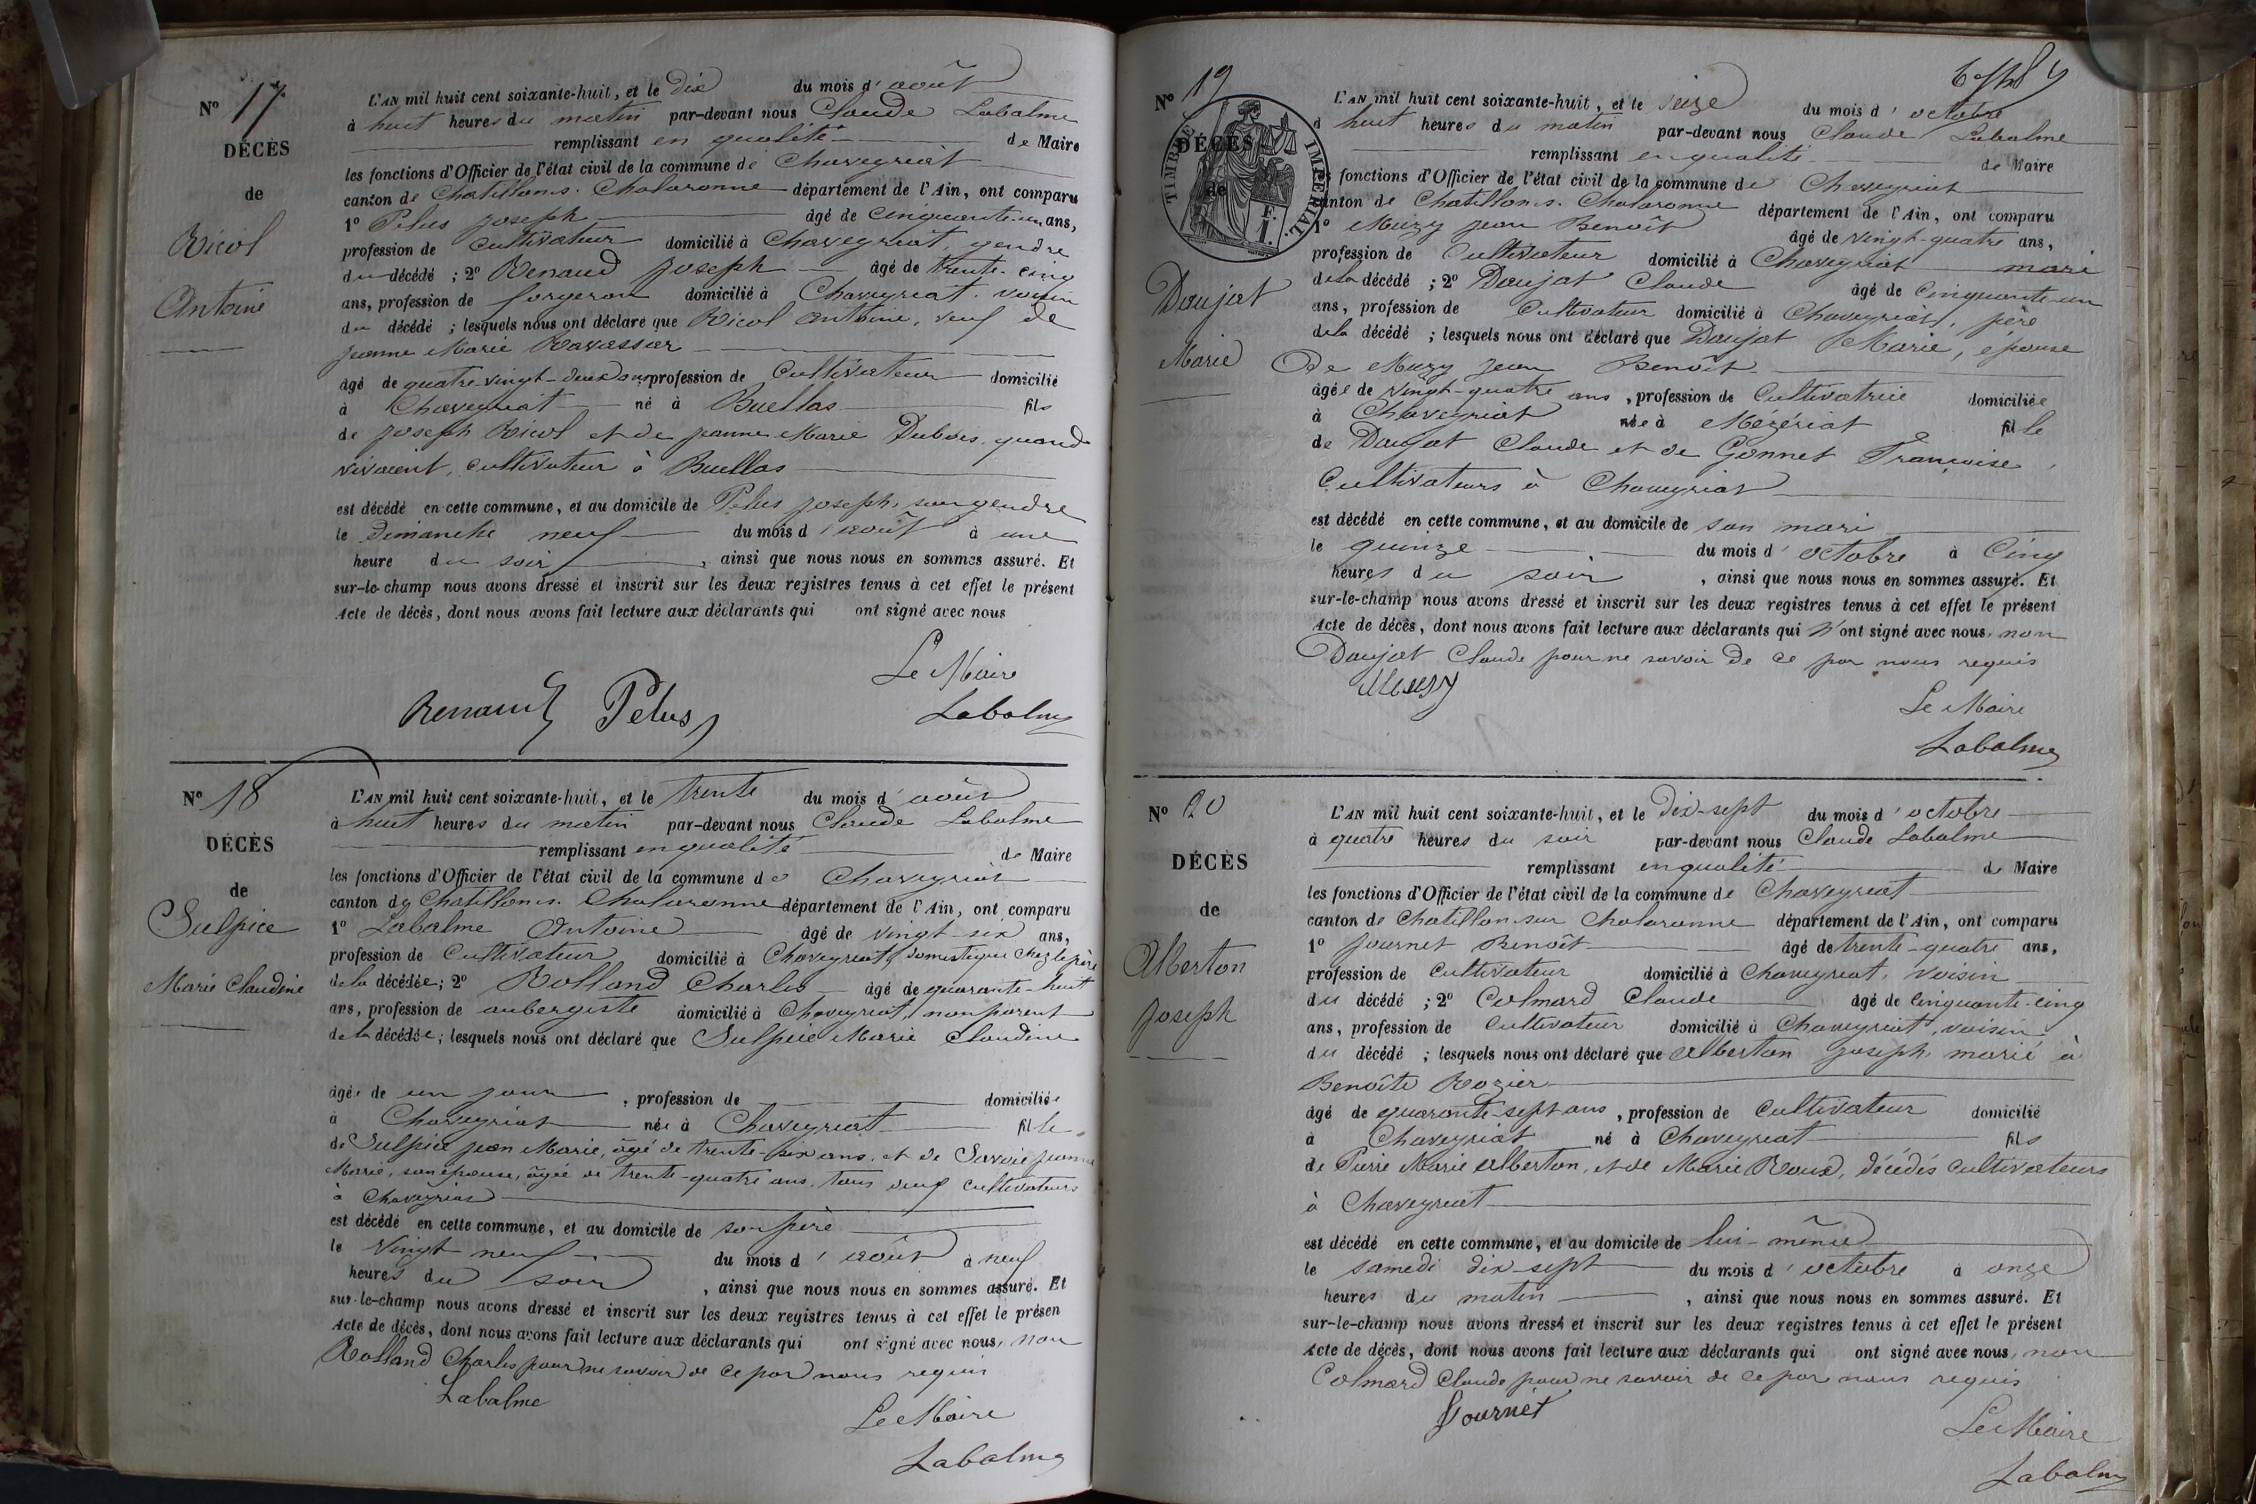 N° 17
DÉCÈS
de
Nicol
Antoine
L'AN mil huit cent soixante-huit, et le dix du mois d'août
à huit heures du matin par-devant nous Claude Labalme
remplissant en qualité de Maire
les fonctions d'Officier de l'état civil de la commune de Chaveyriat
canton de Chatillon s. Chalaronne département de l'Ain, ont comparu
1° Pelus Joseph âgé de cinquante-un ans,
profession de Cultivateur domicilié à Chaveyriat, gendre
du décédé ; 2° Renaud Joseph âgé de trente-cinq
ans, profession de forgeron domicilié à Chaveyriat, voisin
du décédé ; lesquels nous ont déclaré que Nicol Antoine, veuf de
Jeanne Marie Ravassar
âgé de quatre-vingt-deux ans profession de Cultivateur domicilié
à Chaveyriat né à Buellas fils
de Joseph Nicol et de Jeanne Marie Dubois, quand
vivaient, cultivateur à Buellas
est décédé en cette commune, et au domicile de Pelus Joseph, son gendre
le Dimanche neuf du mois d'août à une
heure du soir, ainsi que nous nous en sommes assuré. Et
sur-le-champ nous avons dressé et inscrit sur les deux registres tenus à cet effet le présent
Acte de décès, dont nous avons fait lecture aux déclarants qui ont signé avec nous
Le Maire
Renaud Pelus Labalme
N° 18
DÉCÈS
de
Sulpice
Marie Claudine
L'AN mil huit cent soixante-huit, et le trente du mois d'août
à huit heures du matin par-devant nous Claude Labalme
remplissant en qualité de Maire
les fonctions d'Officier de l'état civil de la commune de Chaveyriat
canton de Chatillon s. Chalaronne département de l'Ain, ont comparu
1° Labalme Antoine âgé de vingt-six ans,
profession de Cultivateur domicilié à Chaveyriat, domestique chez le père
de la décédée ; 2° Rolland Charles âgé de quarante-huit
ans, profession de aubergiste domicilié à Chaveyriat, non parent
de la décédée ; lesquels nous ont déclaré que Sulpice Marie Claudine
âgée de un jour, profession de domiciliée
à Chaveyriat née à Chaveyriat fille
de Sulpice Jean Marie, âgé de trente-six ans, et de Savoie Jeanne
Marie, son épouse, âgée de trente-quatre ans, tous deux cultivateurs
à Chaveyriat
est décédé en cette commune, et au domicile de son père
le vingt neuf du mois d'août à neuf
heures du soir, ainsi que nous nous en sommes assuré. Et
sur-le-champ nous avons dressé et inscrit sur les deux registres tenus à cet effet le présen
Acte de décès, dont nous avons fait lecture aux déclarants qui ont signé avec nous, non
Rolland Charles pour ne savoir de ce par nous requis
Labalme
Le Maire
Labalme
N° 19
TIMBRE IMPÉRIAL
F. 1.
DÉCÈS
de
Daujat
Marie
L'AN mil huit cent soixante-huit, et le seize du mois d'octobre
à huit heures du matin par-devant nous Claude Labalme
remplissant en qualité de Maire
fonctions d'Officier de l'état civil de la commune de Chaveyriat
canton de Chatillon s. Chalaronne département de l'Ain, ont comparu
1° Muzy Jean Benoît âgé de vingt-quatre ans,
profession de Cultivateur domicilié à Chaveyriat mari
de la décédé ; 2° Daujat Claude âgé de cinquante-un
ans, profession de Cultivateur domicilié à Chaveyriat, père
de la décédé ; lesquels nous ont déclaré que Daujat Marie, épouse
De Muzy Jean Benoît
âgée de vingt-quatre ans, profession de Cultivatrice domiciliée
à Chaveyriat née à Mézériat fille
de Daujat Claude et de Gonnet Françoise,
Cultivateurs à Chaveyriat
est décédé en cette commune, et au domicile de son mari
le quinze du mois d'octobre à Cinq
heures du soir, ainsi que nous nous en sommes assuré. Et
sur-le-champ nous avons dressé et inscrit sur les deux registres tenus à cet effet le présent
Acte de décès, dont nous avons fait lecture aux déclarants qui n'ont signé avec nous, non
Daujat Claude pour ne savoir de ce par nous requis
Muzy
Le Maire
Labalme
N° 20
DÉCÈS
de
Alberton
Joseph
L'AN mil huit cent soixante-huit, et le dix-sept du mois d'octobre
à quatre heures du soir par-devant nous Claude Labalme
remplissant en qualité de Maire
les fonctions d'Officier de l'état civil de la commune de Chaveyriat
canton de Chatillon sur Chalaronne département de l'Ain, ont comparu
1° Journet Benoît âgé de trente-quatre ans,
profession de Cultivateur domicilié à Chaveyriat, voisin
du décédé ; 2° Colmard Claude âgé de cinquante-cinq
ans, profession de Cultivateur domicilié à Chaveyriat, voisin
du décédé ; lesquels nous ont déclaré que Alberton Joseph, marié à
Benoîte Rozier
âgé de quarante-sept ans, profession de Cultivateur domicilié
à Chaveyriat né à Chaveyriat fils
de Pierre Marie Alberton, et de Marie Roux, décédés cultivateurs
à Chaveyriat
est décédé en cette commune, et au domicile de lui-même
le samedi dix-sept du mois d'octobre à onze
heures du matin, ainsi que nous nous en sommes assuré. Et
sur-le-champ nous avons dressé et inscrit sur les deux registres tenus à cet effet le présent
Acte de décès, dont nous avons fait lecture aux déclarants qui ont signé avec nous, non
Colmard Claude pour ne savoir de ce par nous requis
Journet
Le Maire
Labalme